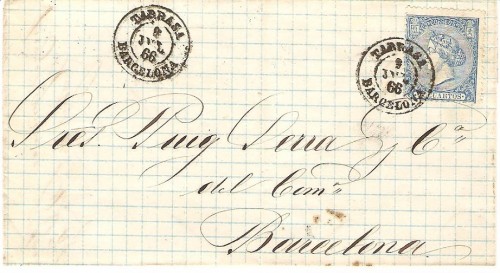 TARRASA
9
JUL
66
BARCELONA
TARRASA
9
JUL
66
BARCELONA
CUARTOS
Sres. Puig Serra y Cª
del Comº
Barcelona